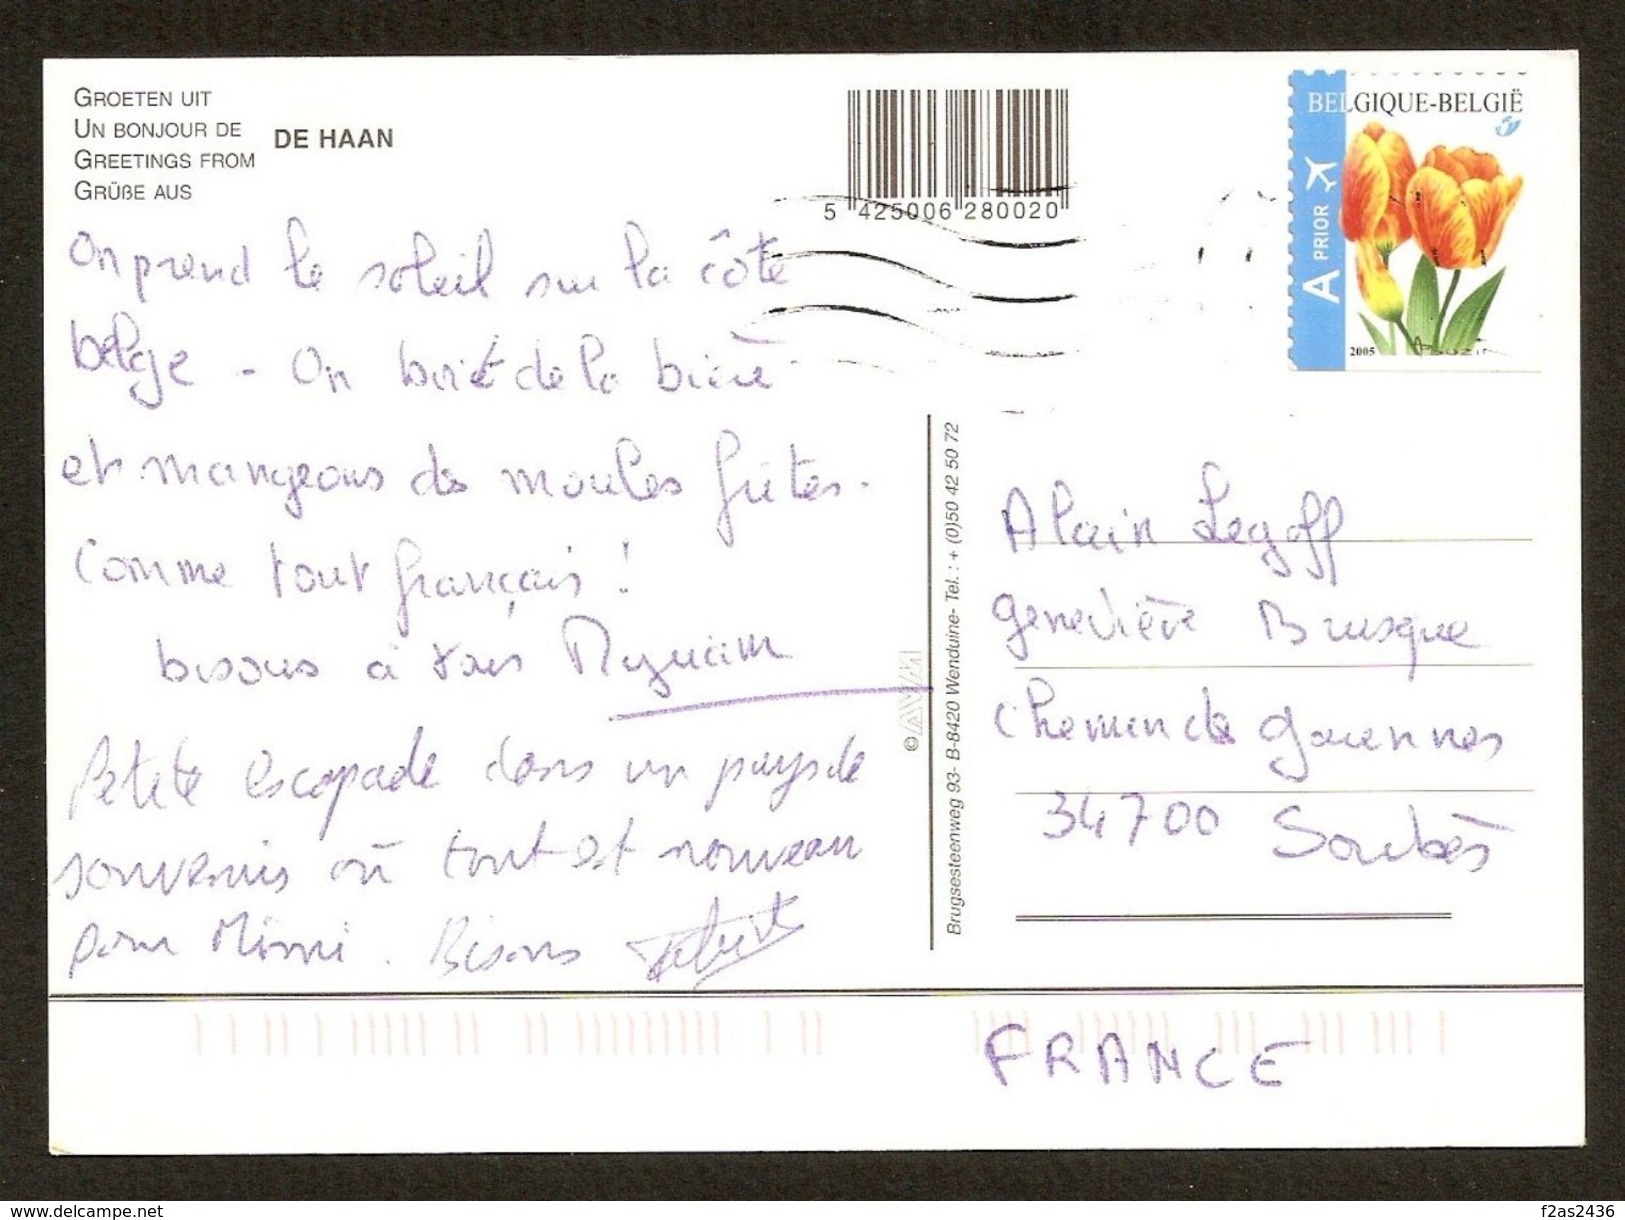 GROETEN UIT
UN BONJOUR DE
GREETINGS FROM
GRÜßE AUS
DE HAAN
5 425006 280020
BELGIQUE-BELGIË
A PRIOR
2005
On prend le soleil sur la côte
belge - On boit de la bière
et mangeons des moules frites.
Comme tout français !
bisous à tous Myriam
Petite escapade dans un pays de
souvenirs où tout est nouveau
pour Mimi. Bisous
© AVM
Brugsesteenweg 93- B-8420 Wenduine- Tel. : + (0)50 42 50 72
Alain Legoff
Geneviève Brusque
Chemin de garennes
34700 Soubès
FRANCE
delcampe.net
f2as2436